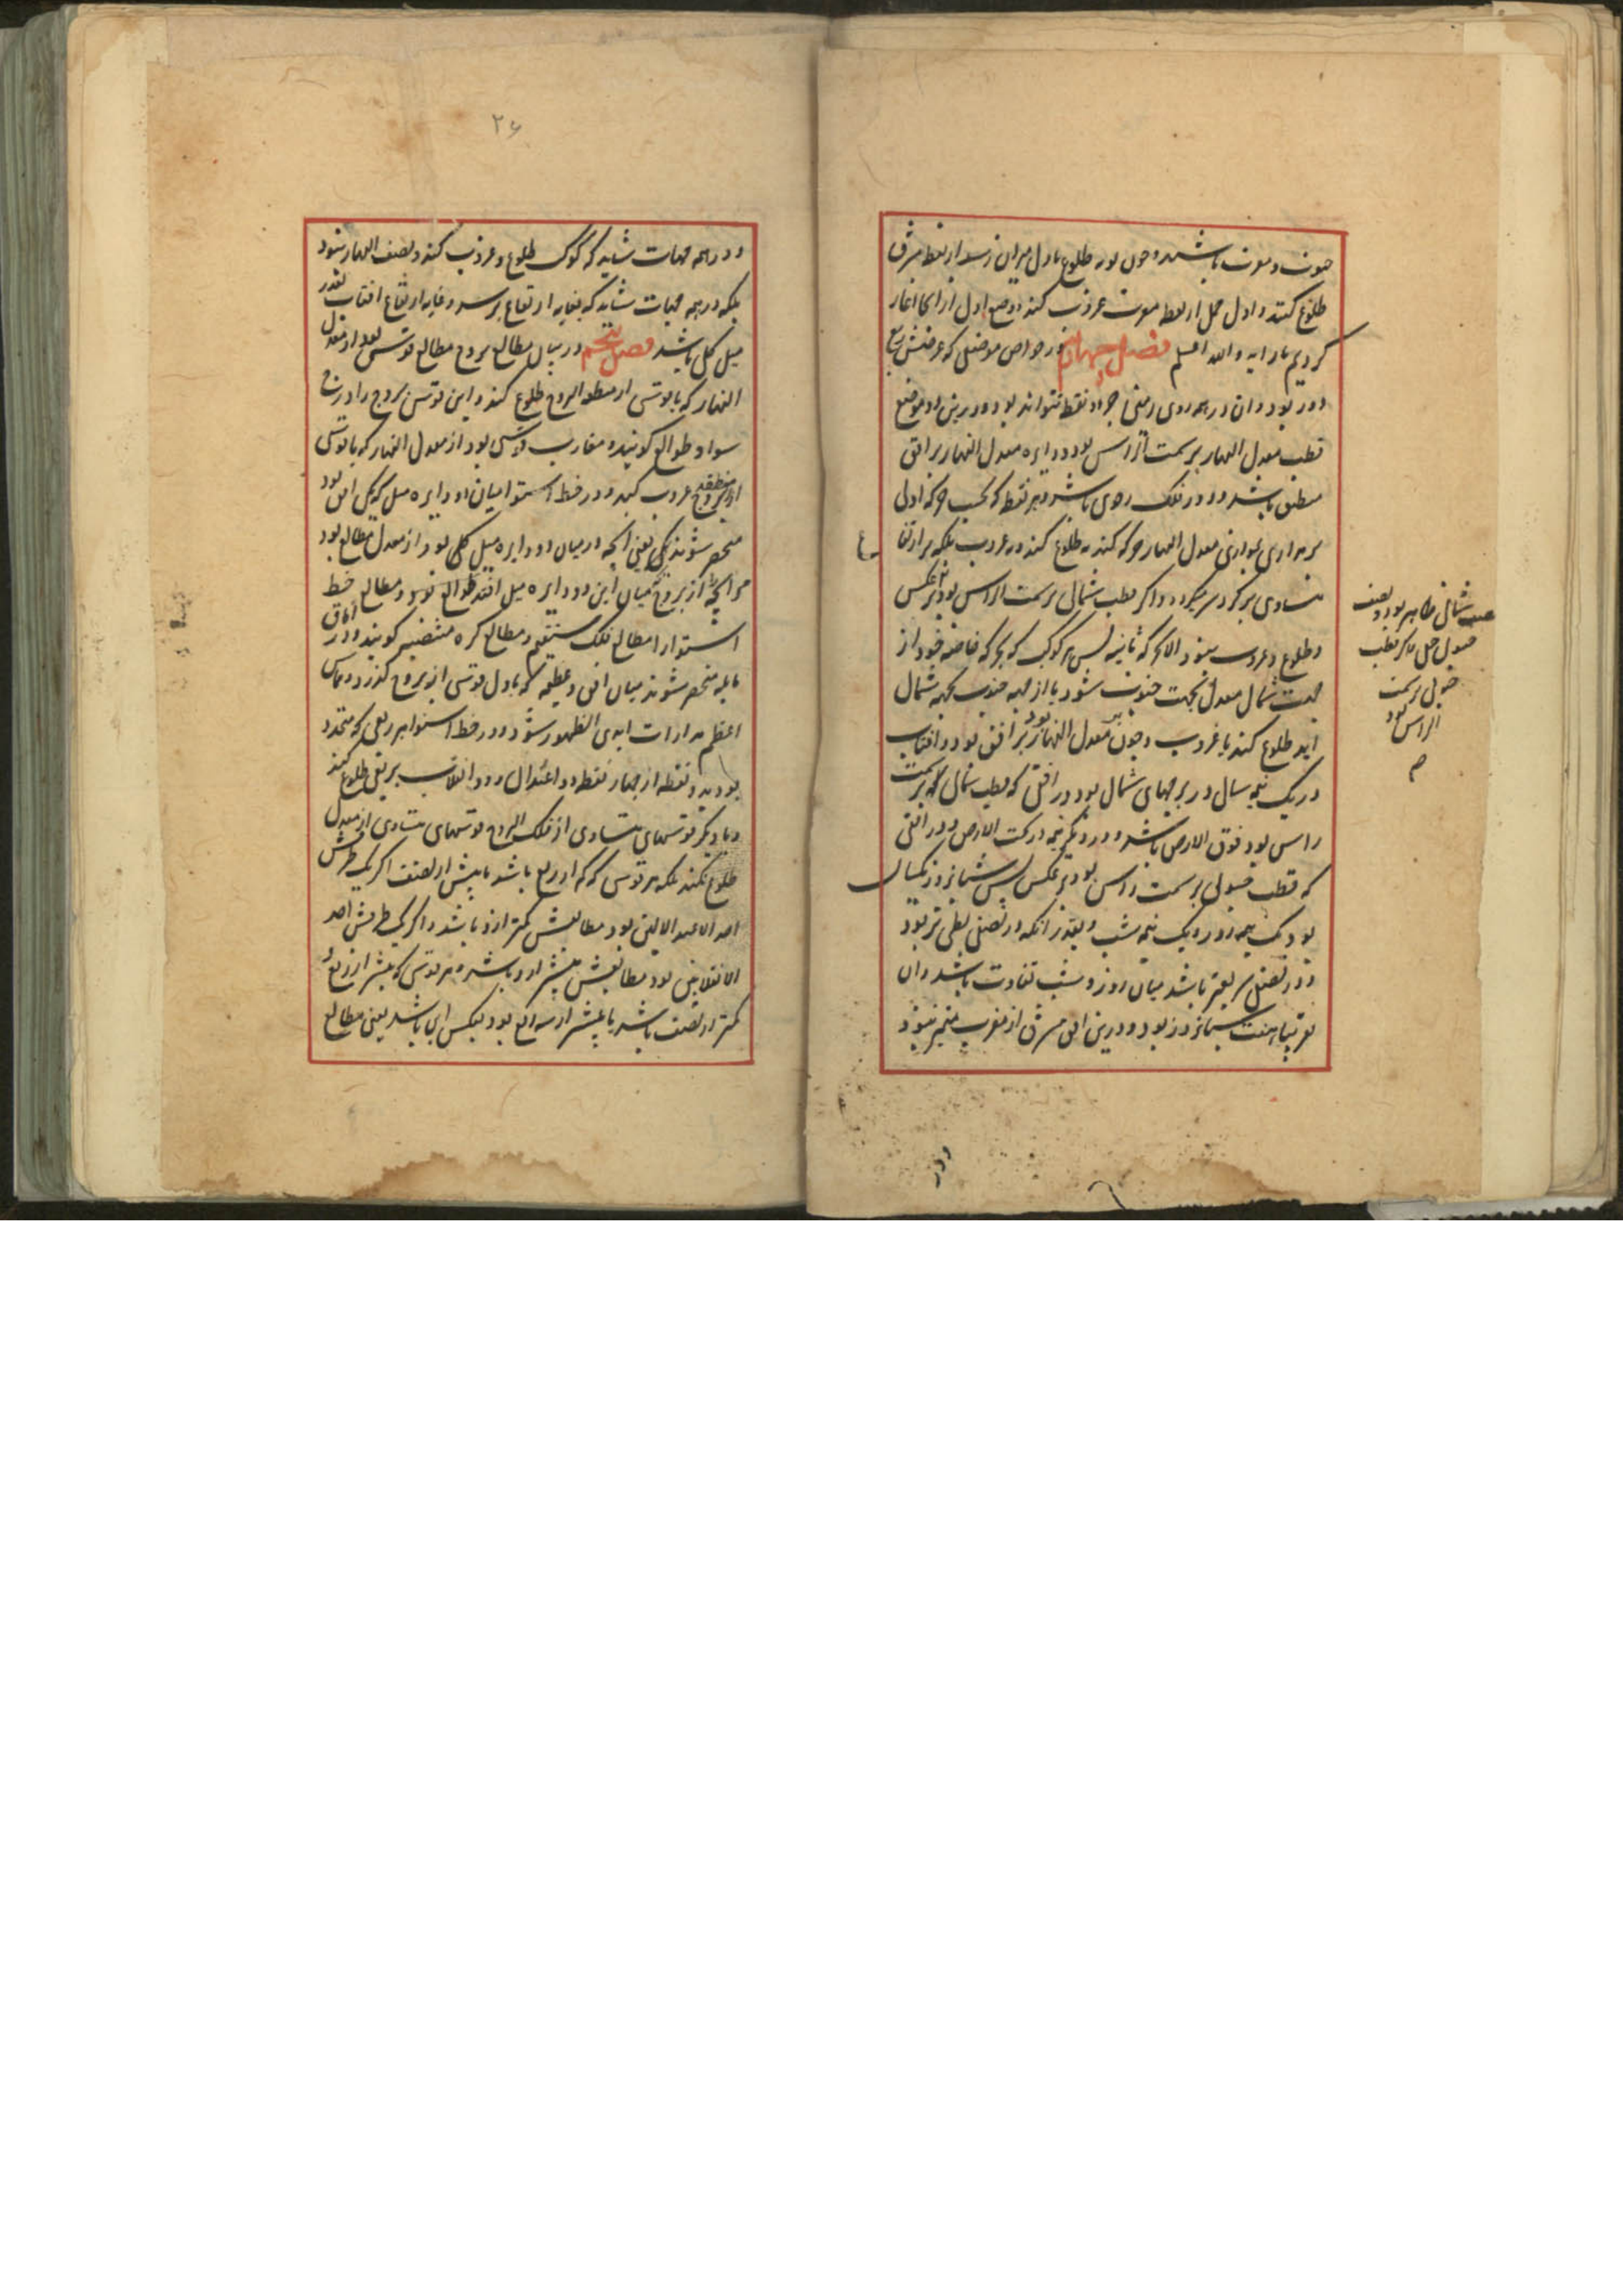 جنوب و مغرب باشند و چون نوبه طلوع باول میزان رسد از نقطه مشرق
طلوع کند و اول حمل از نقطه مغرب غروب کند و وضع اول از آنجا آغاز
کردیم باز آید والله اعلم فصل چهارم در خواص موضعی که عرضش ربع
دور بود و آن در همه روی زمین جز دو نقطه نتواند بود و درین دو موضع
قطب معدل النهار بر سمت الراس بود و دایره معدل النهار بر افق
منطبق باشد و دور فلک رحوی باشد و هر نقطه که بحسب حرکه اولی
بر مداری موازی معدل النهار حرکه کند نه طلوع کند و نه غروب بلکه بر ارتفاع
متساوی بر گرد سر میگردد و اگر قطب شمالی بر سمت الراس بود بر عکس
و طلوع و غروب نبود الا بحرکه ثانیه پس هر کوکب که بحرکه خاصه خود از
جهت شمال معدل بجهت جنوب شود یا از جهه جنوب بجهه شمال
آید طلوع کند یا غروب و چون معدل النهار بر افق بود و آفتاب
در یک نیمه سال در برجهای شمالی بود در افقی که قطب شمالی بر سمت
راس بود فوق الارض باشد و در دیگر نیمه در تحت الارض و در افقی
که قطب جنوبی بر سمت راس بود بر عکس پس شبانروز یکسال
بود یک نیمه روز و یک نیمه شب و بقدر آنکه در نصفی بطی تر بود
و در نصفی سریعتر باشد میان روز و شب تفاوت باشد و آن
تقریبا هفت شبانروز بود و درین افق مشرق از مغرب متمیز نبود
نصف شمالی ظاهر بود و نصف
جنوبی خفی و اگر قطب
جنوبی بر سمت
الراس بود
ودر
۲۶
و در همه جهات شاید که کوکب طلوع و غروب کند و نصف النهار نبود
بلکه در همه جهات شاید که بغایه ارتفاع برسد و غایه ارتفاع آفتاب بقدر
میل کلی باشد فصل پنجم در بیان مطالع بروج مطالع قوسی بود از معدل
النهار که با قوسی از منطقه البروج طلوع کند و این قوس بروج را درج
سوا و طوالع گویند و مغارب قوسی بود از معدل النهار که با قوسی
از منطقه بروج غروب کند و در خط استوا میان دو دایره میل که یکی افق بود
منحصر شوند یعنی آنچه در میان دو دایره میل کلی بود از معدل مطالع بود
مر آنچه از بروج میان این دو دایره میل افتد طوالع بود و مطالع خط
استوا را مطالع فلک مستقیم و مطالع کره منتصب گویند و در آفاق
مایله منحصر شوند میان افق و عظیمه که باول قوسی از بروج گذرد و مماس
اعظم مدارات ابدی الظهور شود و در خط استوا هر ربعی که متحدد
بود بدو نقطه از چهار نقطه دو اعتدال و دو انقلاب بربعی طلوع کند
و با دیگر قوسهای متساوی از فلک البروج قوسهای متساوی از معدل
طلوع نکند بلکه هر قوسی که کم از ربع باشد یا بیش از نصف اگر یک طرفش
احد الاعتدالین بود مطالعش کمتر ازو باشد و اگر یک طرفش احد
الانقلابین بود مطالعش بیشتر ازو باشد و هر قوسی که بیشتر از ربع و
کمتر از نصف باشد یا بیشتر از سه ربع بود بعکس این باشد یعنی مطالع